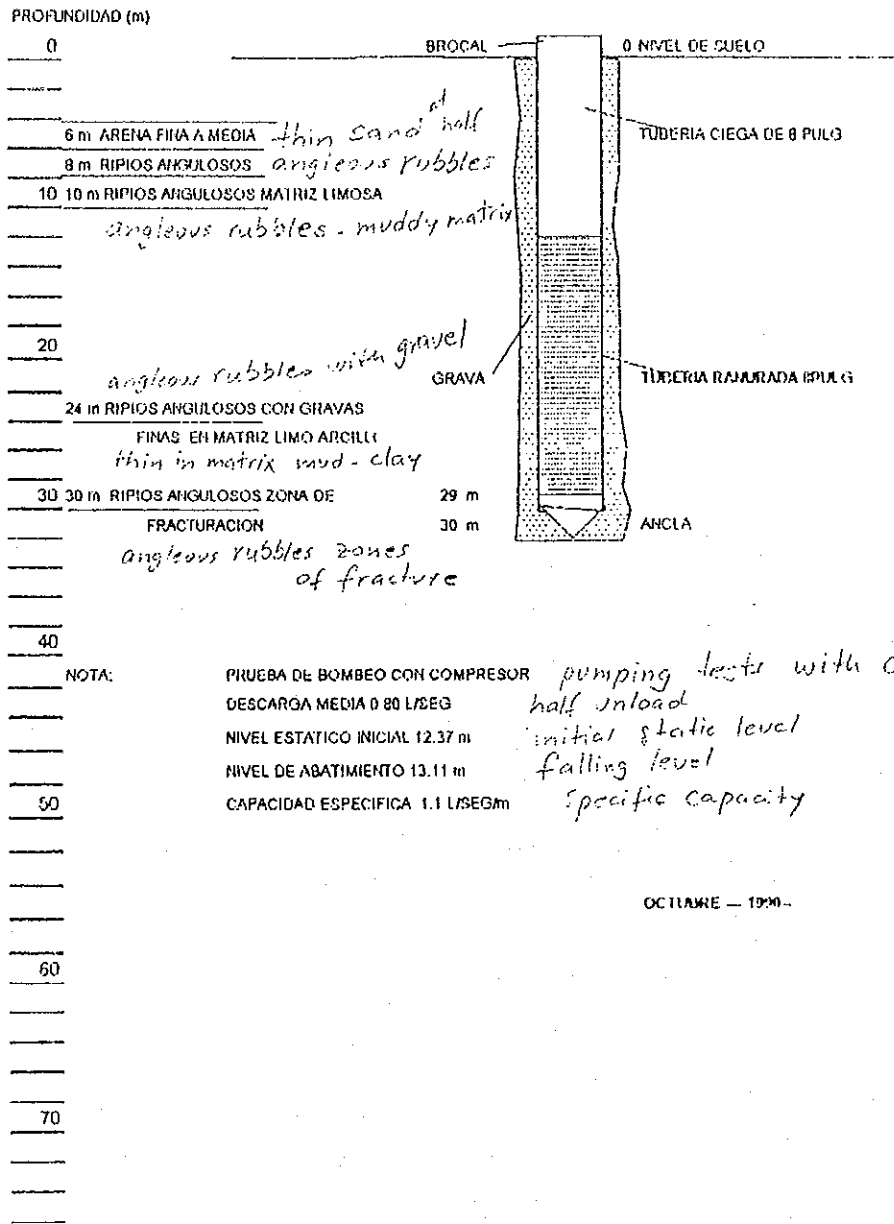 PROFUNDIDAD (m)
0
BROCAL
0 NIVEL DE SUELO
TUBERIA CIEGA DE 8 PULG
6 m ARENA FINA A MEDIA thin sand at half
8 m RIPIOS ANGULOSOS angleous rubbles
10 10 m RIPIOS ANGULOSOS MATRIZ LIMOSA
angleous rubbles - muddy matrix
20
angleous rubbles with gravel
GRAVA
TUBERIA RANURADA 8PULG
24 m RIPIOS ANGULOSOS CON GRAVAS
FINAS EN MATRIZ LIMO
thin in matrix mud - clay
30 30 m RIPIOS ANGULOSOS ZONA DE 29 m
FRACTURACION 30 m ANCLA
angleous rubbles zones
of fracture
40
NOTA: PRUEBA DE BOMBEO CON COMPRESOR pumping tests with
DESCARGA MEDIA 0.80 L/SEG half unload
NIVEL ESTATICO INICIAL 12.37 m initial static level
NIVEL DE ABATIMIENTO 13.11 m falling level
50 CAPACIDAD ESPECIFICA 1.1 L/SEG/m Specific capacity
OCTUBRE — 1990-
60
70